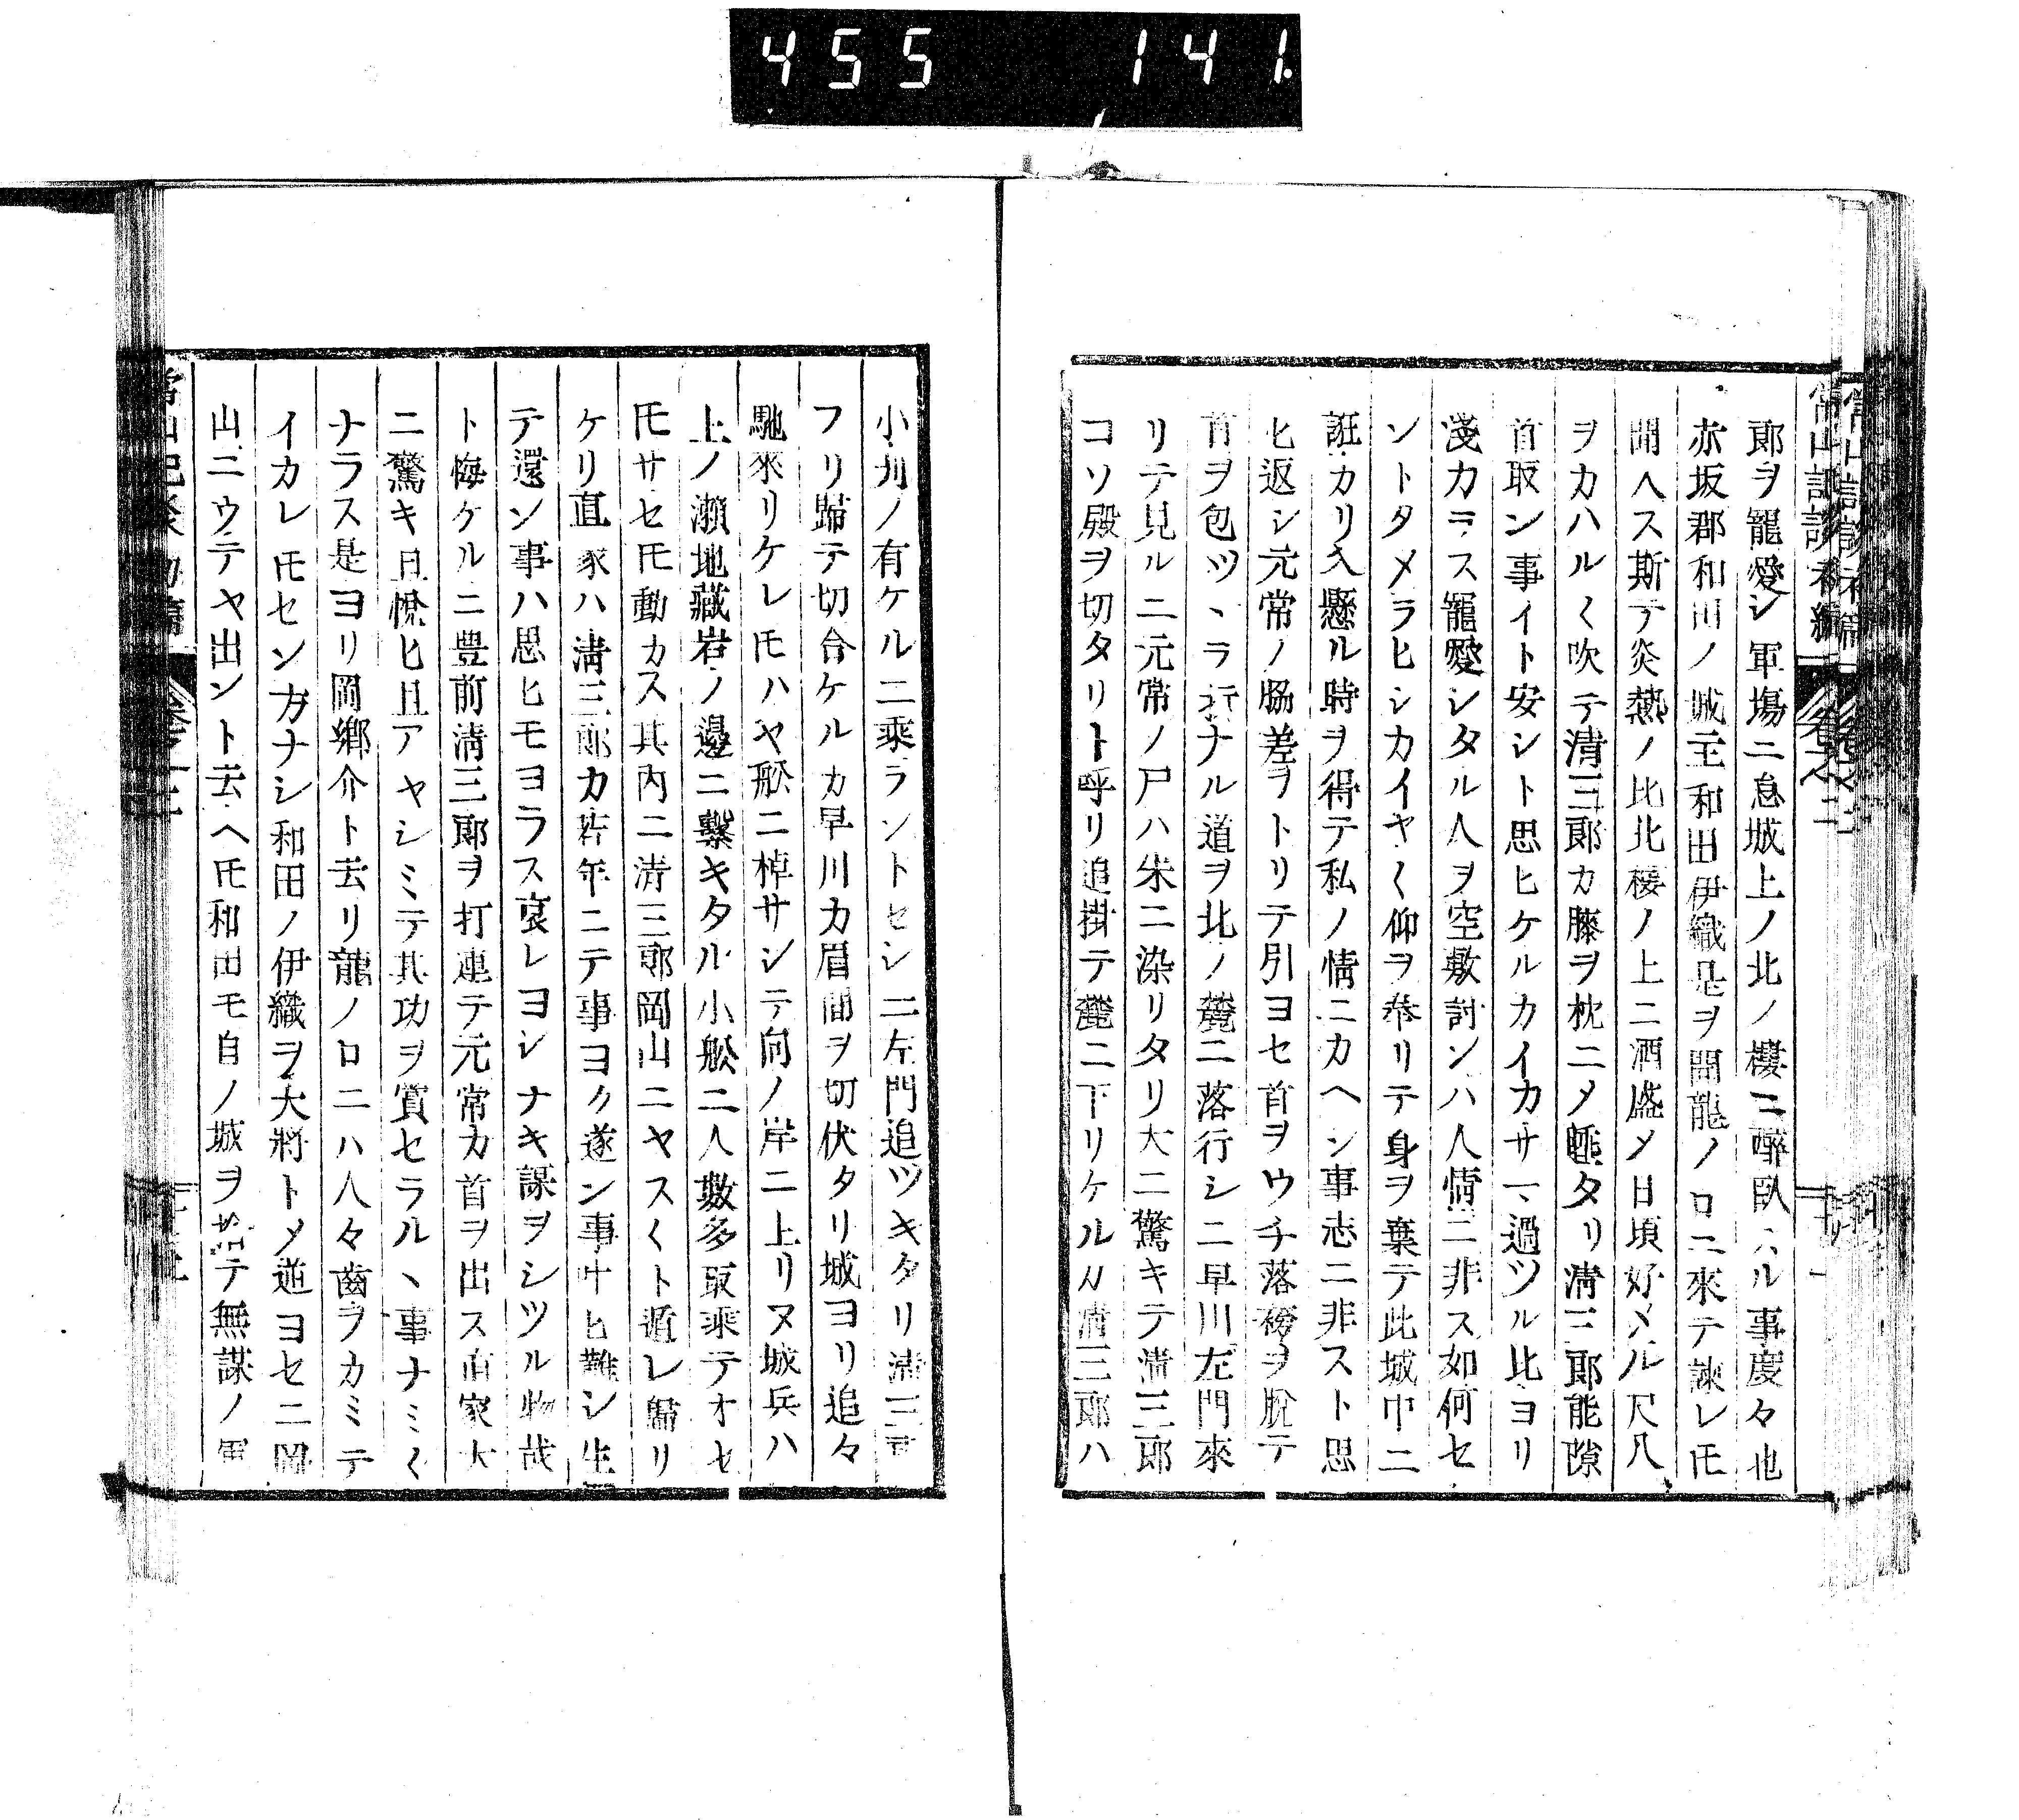 455 141
郎ヲ寵愛シ軍塲ニ息城上ノ北ノ樓ニ醉臥スル事度々也
赤坂郡和田ノ城主和田伊織是ヲ聞龍ノ口ニ來テ諫レ𪜈
聞入ス斯テ炎熱ノ比北樓ノ上ニ酒盛メ日頃好メル尺八
ヲカハル〱吹テ清三郎カ膝ヲ枕ニメ睡タリ清三郎能隙
首取ン事イト安シト思ヒケルカイカサマ過ツル比ヨリ
淺カラス寵愛シタル人ヲ空敷討ンハ人情ニ非ス如何セ
ントタメラヒシカイヤ〱仰ヲ奉リテ身ヲ棄テ此城中ニ
誑カリ入懸ル時ヲ得テ私ノ情ニカヘン事志ニ非スト思
ヒ返シ元常ノ脇差ヲトリテ引ヨセ首ヲウチ落袴ヲ脫テ
首ヲ包ツヽラ折ナル道ヲ北ノ麓ニ落行シニ早川左門來
リテ見ルニ元常ノ尸ハ朱ニ染リタリ大ニ驚キテ清三郎
コソ殿ヲ切タリト呼リ追掛テ麓ニ下リケルカ清三郎ハ
小舟ノ有ケルニ乘ラントセシニ左門追ツキタリ清三郎
フリ歸テ切合ケルカ早川カ眉間ヲ切伏タリ城ヨリ追々
馳來リケレ𪜈ハヤ舩ニ棹サシテ向ノ岸ニ上リヌ城兵ハ
上ノ瀬地藏岩ノ邊ニ繫キタル小舩ニ人數多取乘テオセ
𪜈サセ𪜈動カス其内ニ清三郎岡山ニヤス〱ト遁レ歸リ
ケリ直家ハ清三郎カ若年ニテ事ヨク遂ン事叶ヒ難シ生
テ還ン事ハ思ヒモヨラス哀レヨシナキ謀ヲシツル物哉
ト悔ケルニ豊前清三郎ヲ打連テ元常カ首ヲ出ス直家大
ニ驚キ且悅ヒ且アヤシミテ其功ヲ賞セラルヽ事ナミ〱
ナラス是ヨリ岡鄕介ト云リ龍ノ口ニハ人々齒ヲカミテ
イカレ𪜈セン方ナシ和田ノ伊織ヲ大將トメ逆ヨセニ岡
山ニウテヤ出ント云ヘ𪜈和田モ自ノ城ヲ捨テ無謀ノ軍